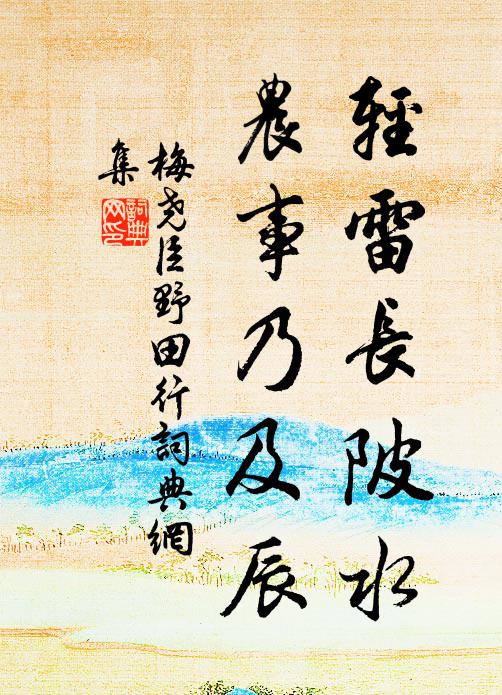 輕雷長陂水
農事乃及辰
梅堯臣野田行詞典網
集
詞典
网印